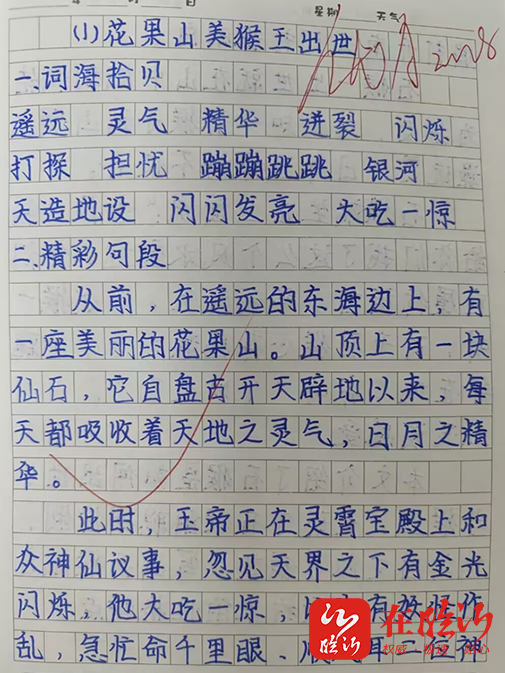 年 日 星期 天气
(1)花果山美猴王出世
一、词海拾贝
遥远 灵气 精华 迸裂 闪烁
打探 担忧 蹦蹦跳跳 银河
天造地设 闪闪发亮 大吃一惊
二、精彩句段
从前，在遥远的东海边上，有
一座美丽的花果山。山顶上有一块
仙石，它自盘古开天辟地以来，每
天都吸收着天地之灵气，日月之精
华。
此时，玉帝正在灵霄宝殿上和
众神仙议事，忽见天界之下有金光
闪烁，他大吃一惊，有妖怪作
乱，急忙命千里眼、顺耳二位神
在临沂